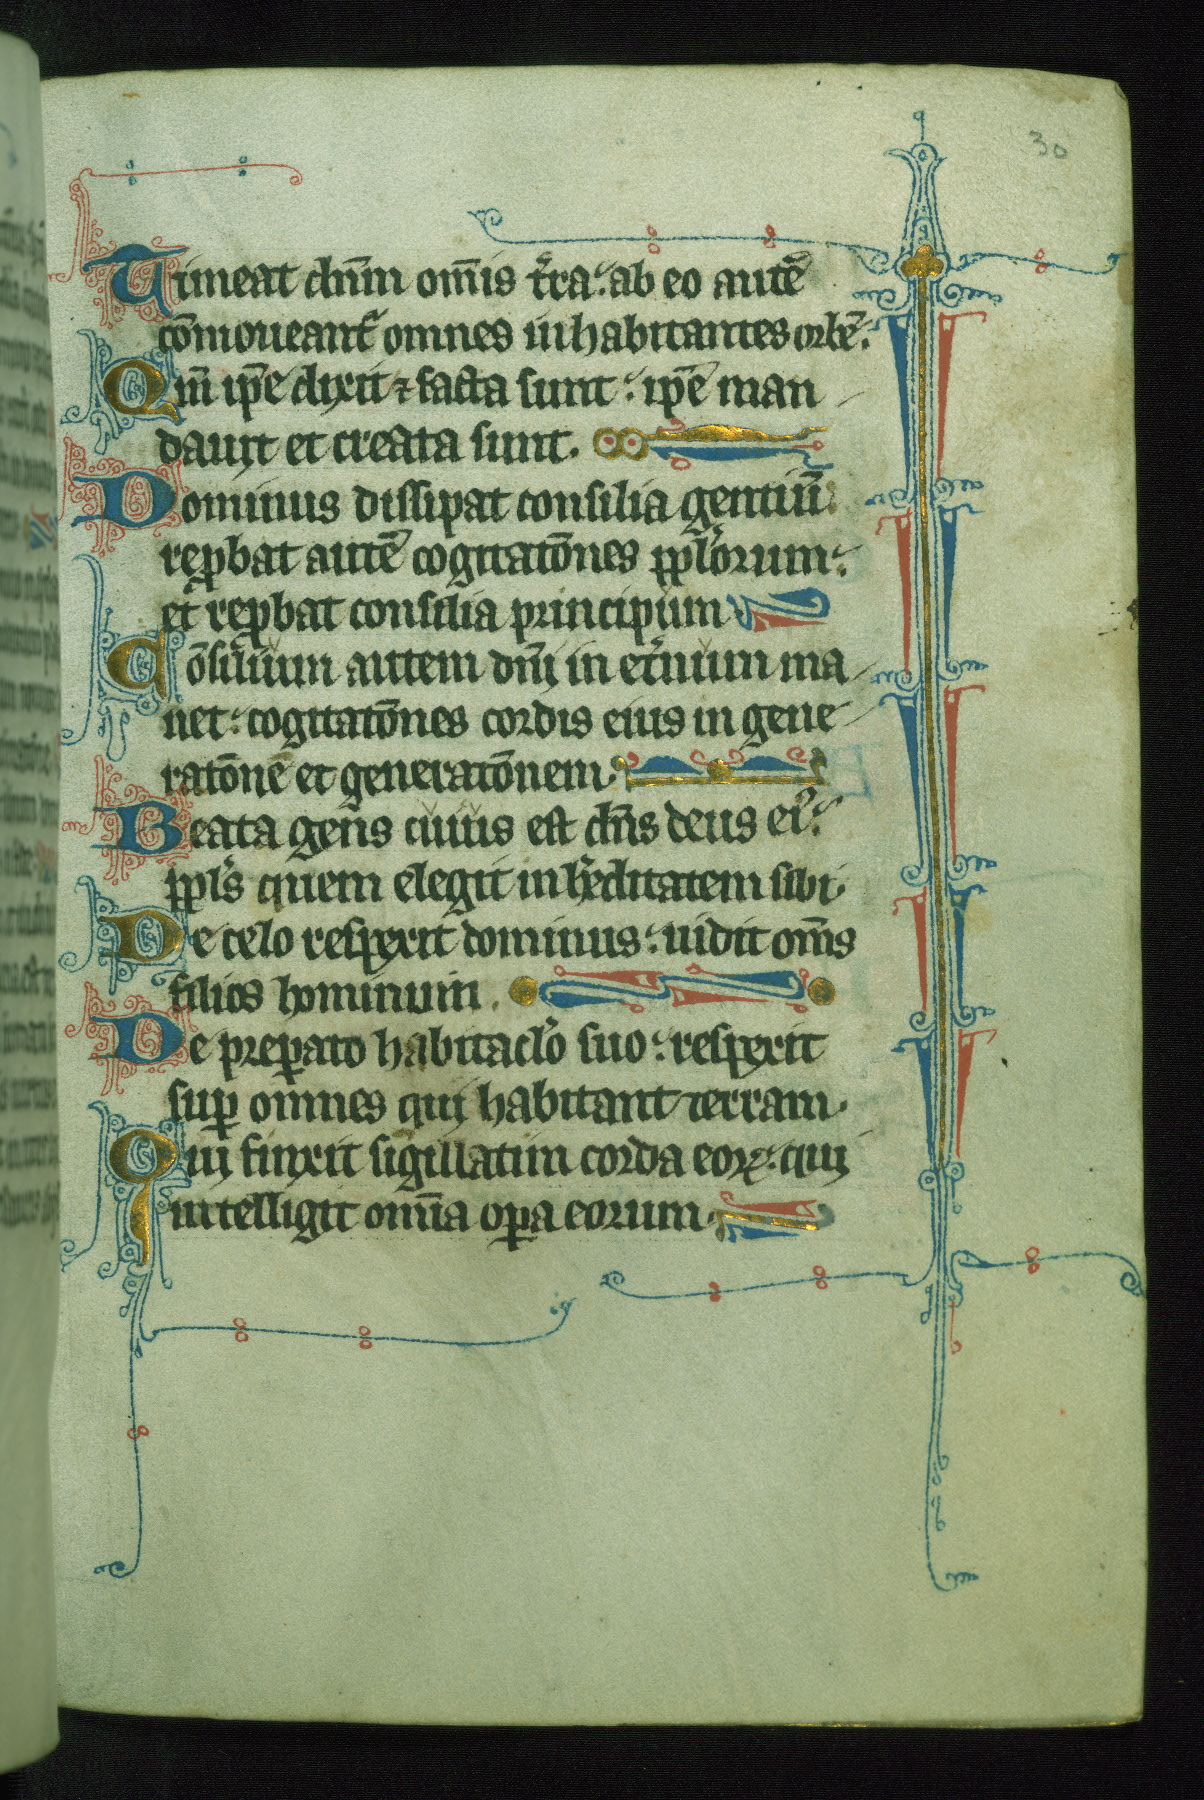 30
Timeat dn̄m om̄is tʳra: ab eo autē
cōmoueantʳ omnes inhabitantes orbē:
Qm̄ ip̄e dixit ⁊ facta sunt: ip̄e man
dauit et creata sunt.
Dominus dissipat consilia gentiū:
ꝛeꝓbat autē cogitatōnes pplʼorum:
et reꝓbat consilia principum
Cōsiliuum autem dn̄i in etʼnuum ma
net: cogitatōnes cordis eius in gene
ratōnē et generatōnem.
Beata gens cuius est dn̄s deus eiꝰ:
pplʼs quem elegit in hʼeditatem sibi.
De celo respexit dominus: uidit om̄s
filios hominum.
De preꝑato habitaclʼo suo: respexit
suꝑ omnes qui habitant terram.
Qui finxit sigillatim corda eoꝝ: qui
intelligit om̄ia oꝑa eorum.